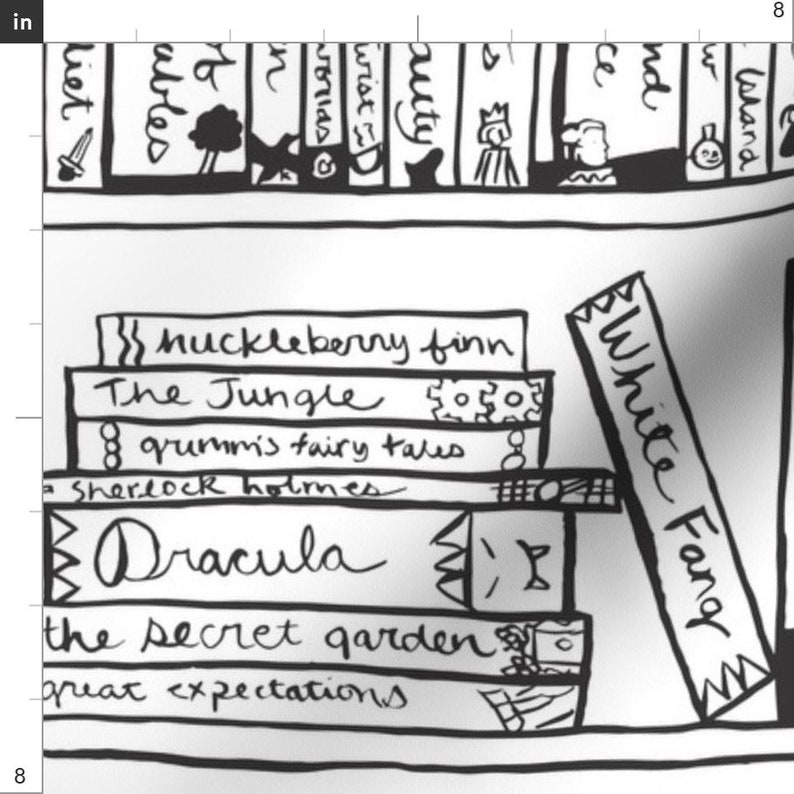 in
8
liet
ables
worlds
wist
auty
's
ce
nd
Island
huckleberry finn
The Jungle
grimm's fairy tales
sherlock holmes
Dracula
the secret garden
great expectations
White Fang
8